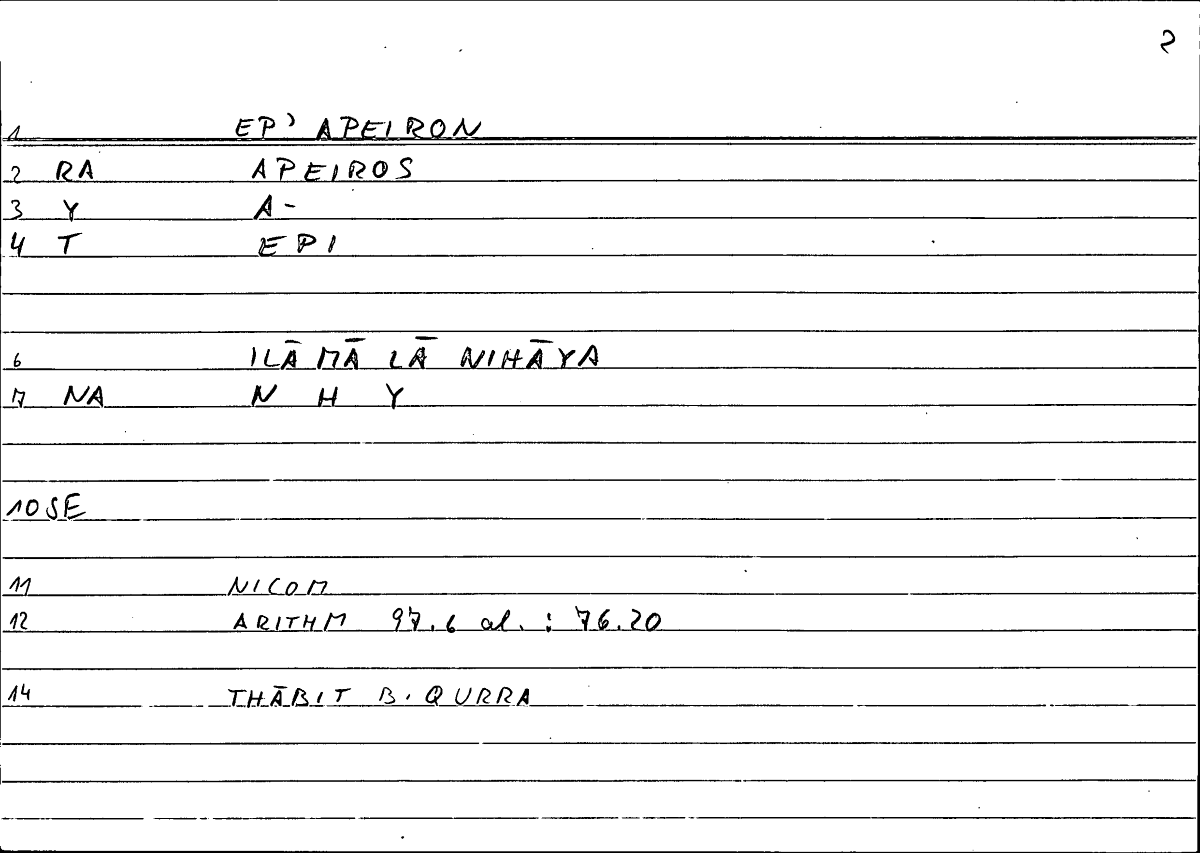 2
1 EP' APEIRON
2 RA APEIROS
3 Y A-
4 T EPI
6 ILĀ MĀ LĀ NIHĀYA
7 NA N H Y
10 SE
11 NICOM
12 ARITHM 97.6 al. : 76.20
14 THĀBIT B. QURRA